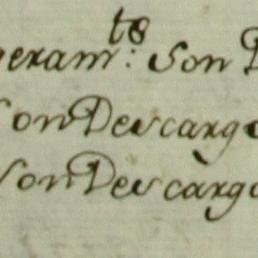 geram.te Son D
Son Descargo
Son Descàrgo